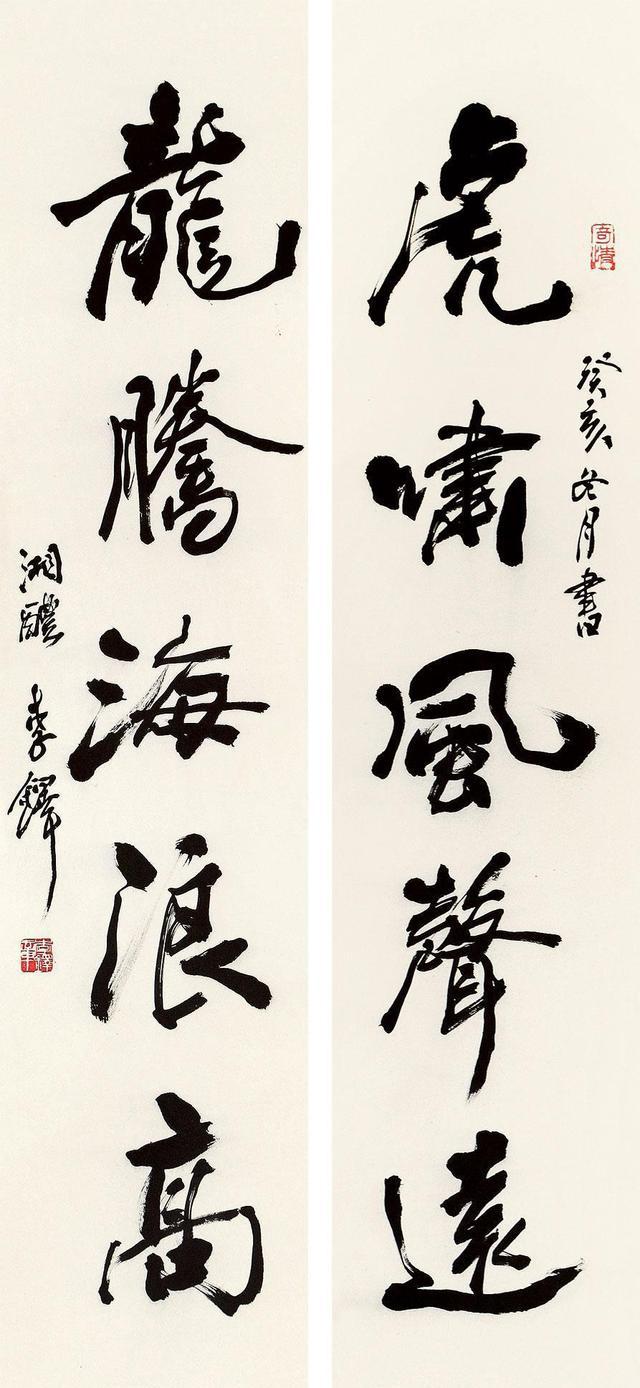 虎啸風聲遠
癸亥冬月書
龍騰海浪高
湘醴李鐸